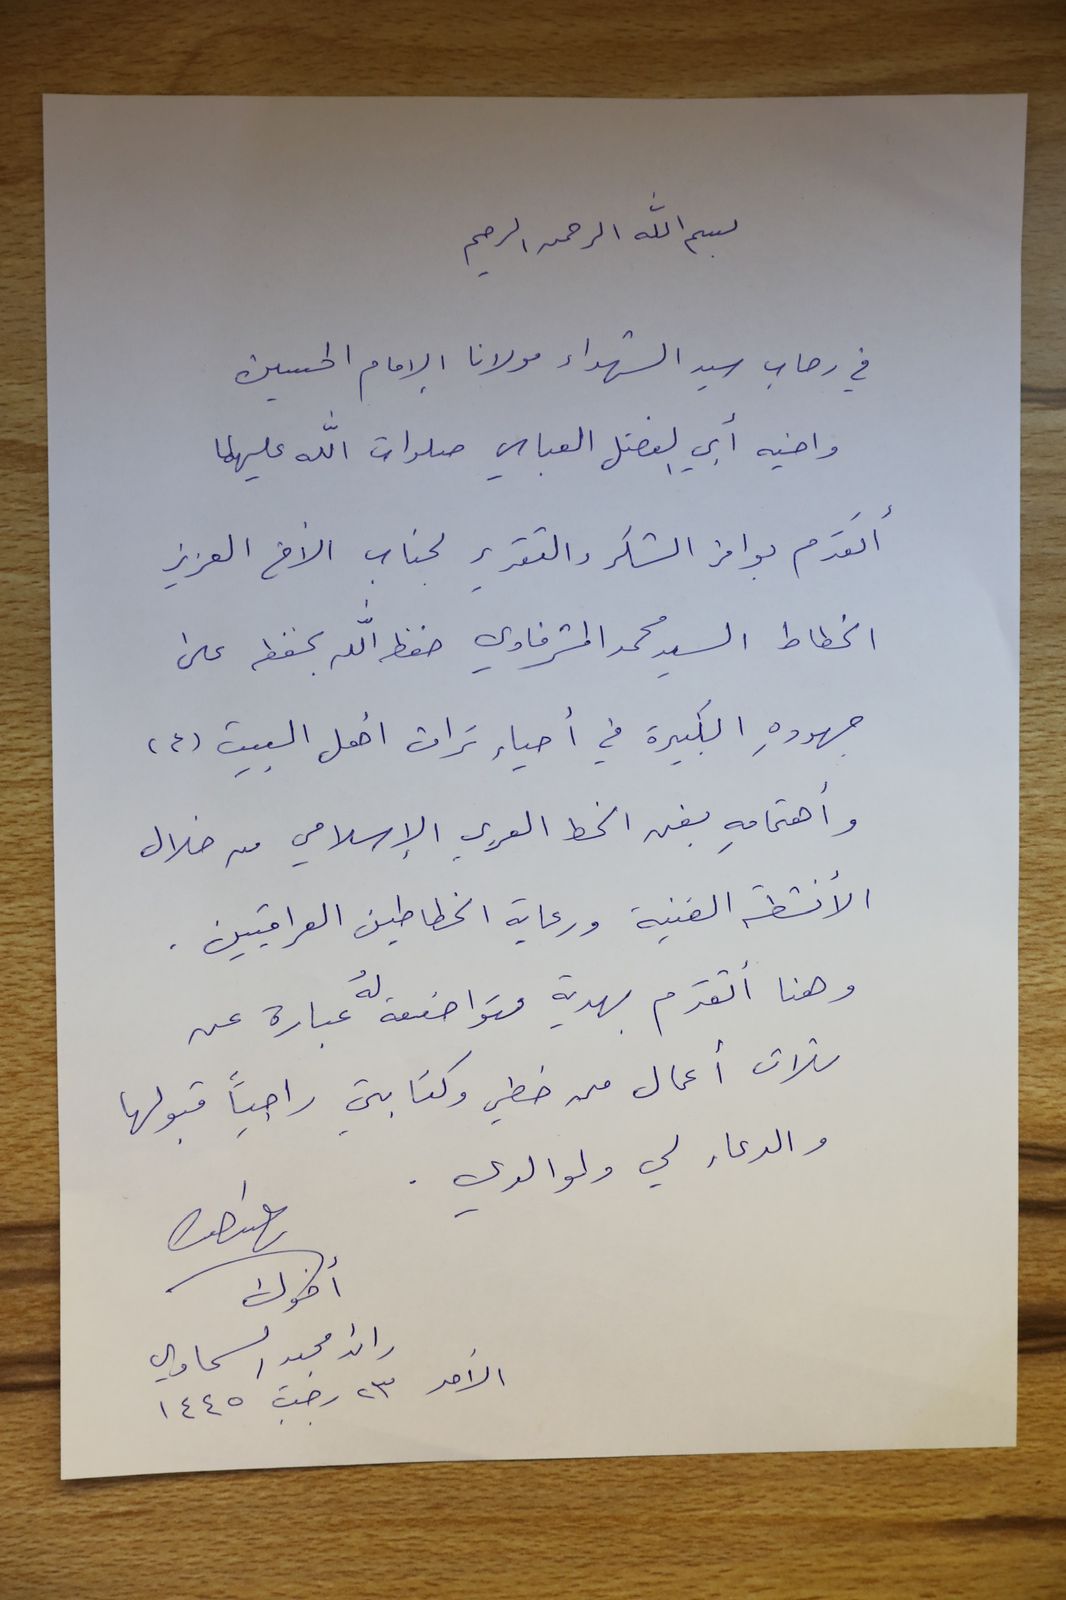 بسم الله الرحمن الرحيم
في رحاب سيد الشهداء مولانا الإمام الحسين
واخيه أبي الفضل العباس صلوات الله عليهما
أتقدم بوافر الشكر والتقدير لجناب الأخ العزيز
الخطاط السيد محمد المشرفاوي حفظه الله بحفظه على
جهودهِ الكبيرة في أحياء تراث اهل البيت (ع)
وأهتمامهِ بفن الخط العربي الإسلامي من خلال
الأنشطة الفنية ورعاية الخطاطين العراقيين .
وهنا أتقدم بهدية متواضعة لهُ عبارة عن
ثلاث أعمال من خطي وكتابتي راجياً قبولها
والدعاء لي ولوالدي .
أخوك
رائد مجيد السماوي
الأحد ٢٣ رجب ١٤٤٥